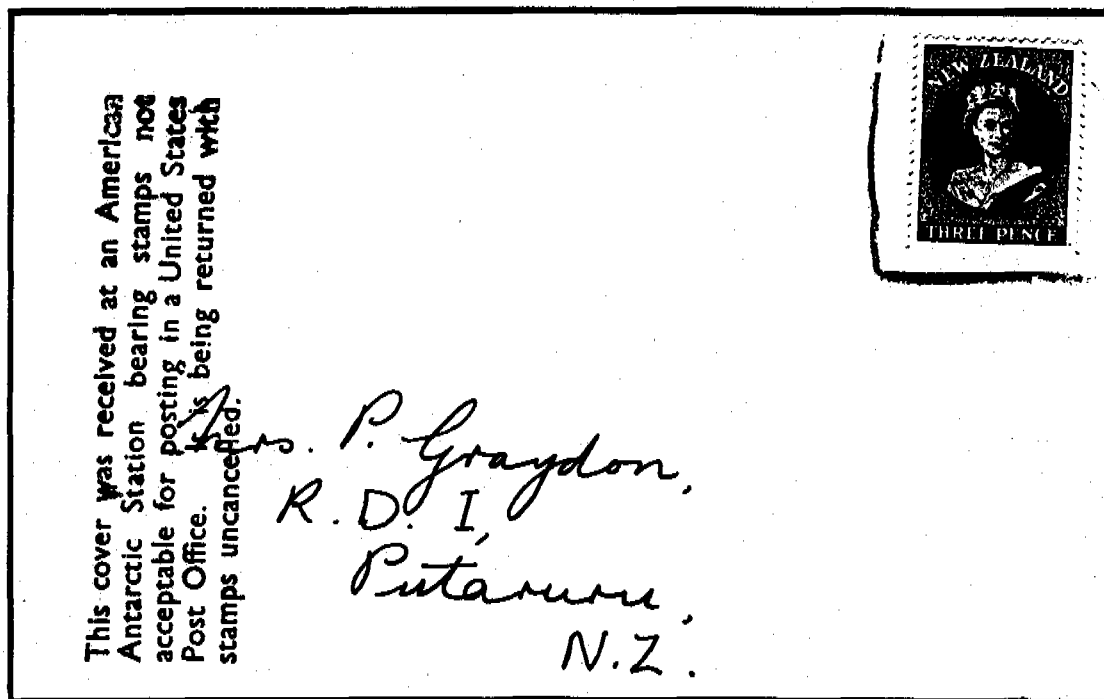 This cover was received at an American
Antarctic Station bearing stamps not
acceptable for posting in a United States
Post Office. It is being returned with
stamps uncancelled.
NEW ZEALAND
THREE PENCE
Mrs. P. Graydon,
R.D. I,
Putaruru,
N.Z.